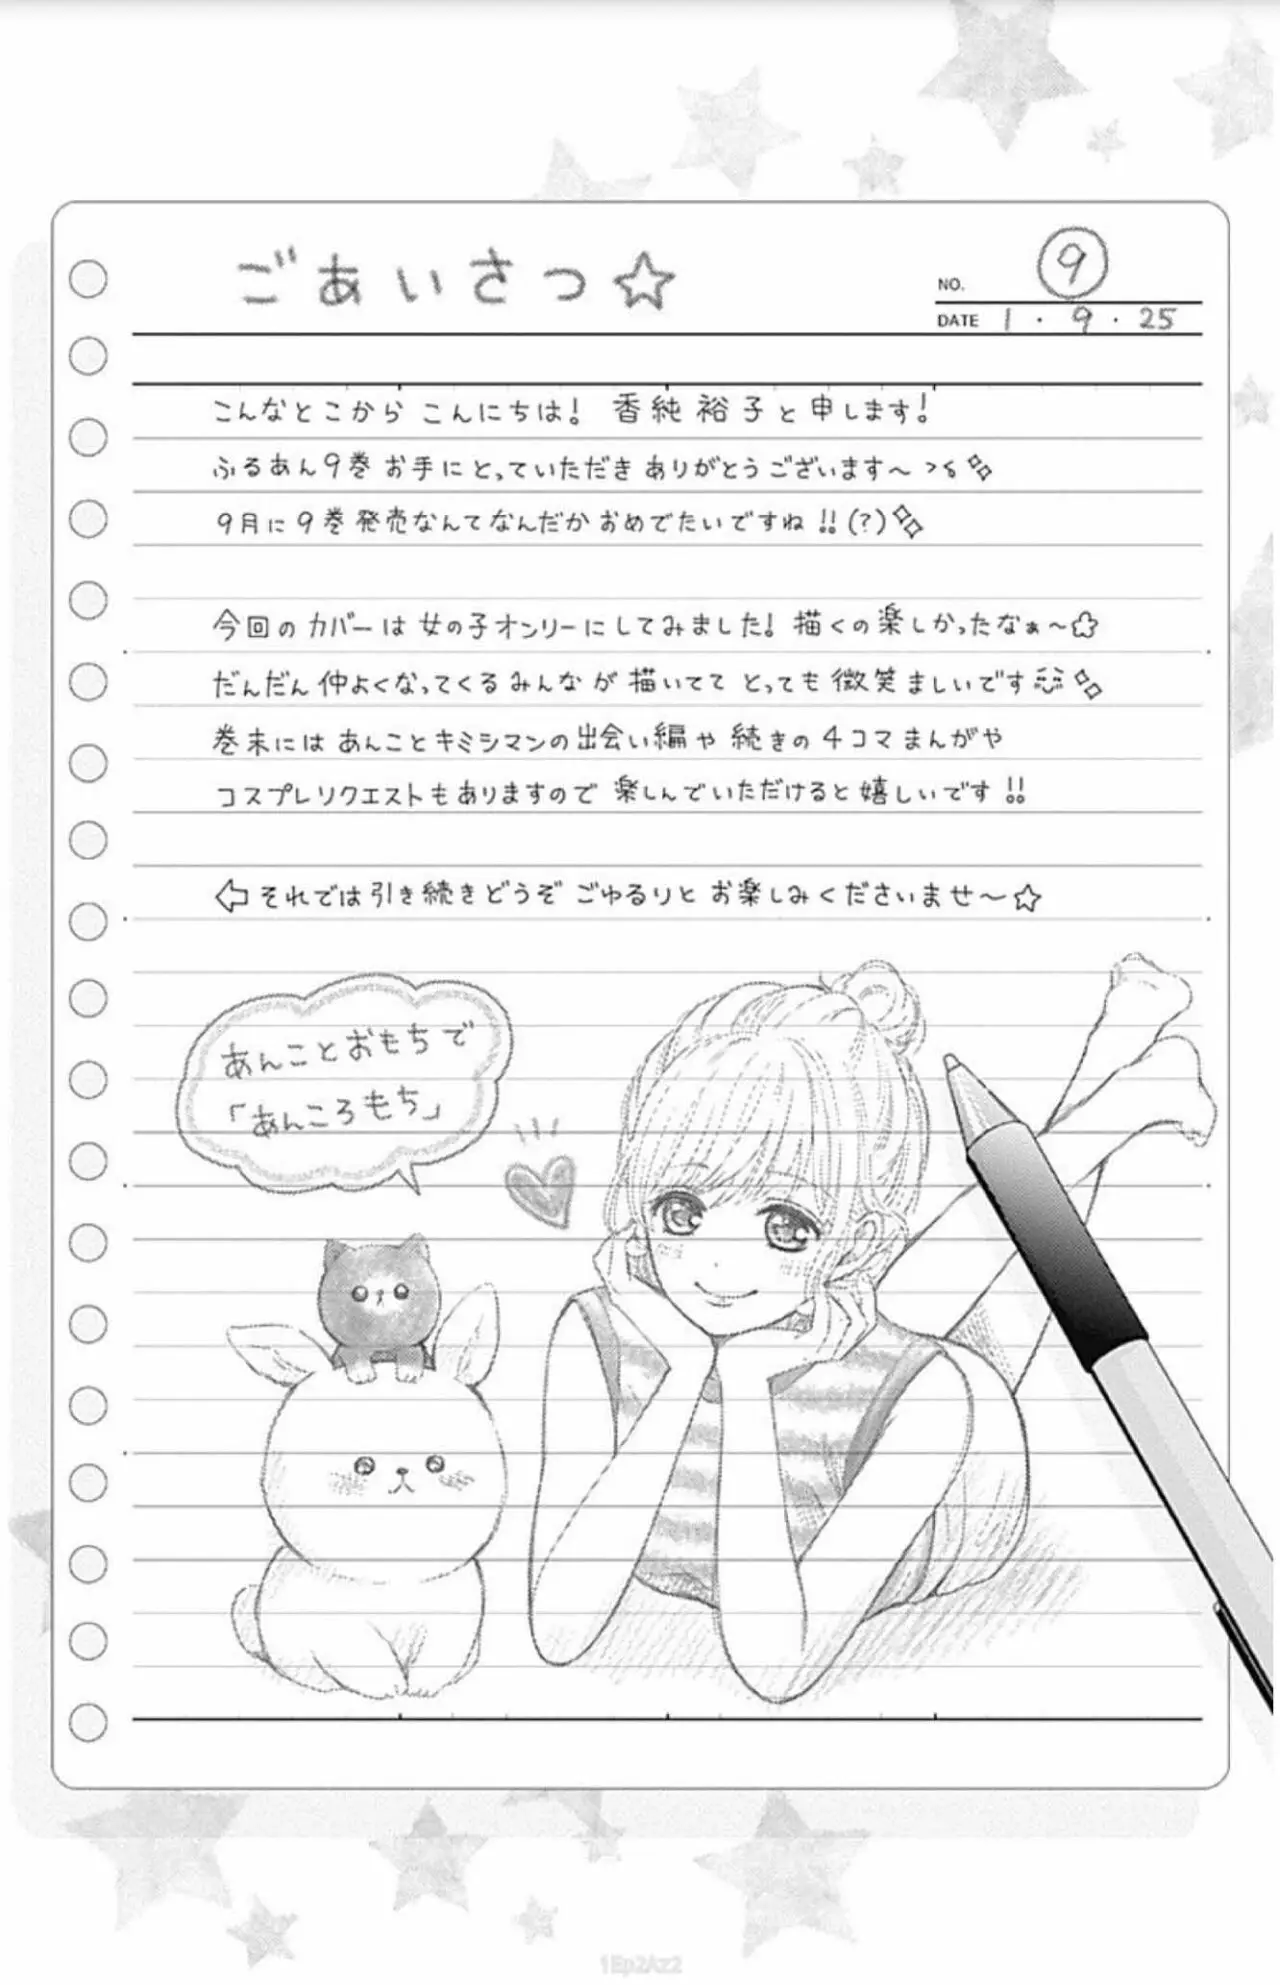 ごあいさつ☆
NO. ⑨
DATE 1・9・25
こんなとこから こんにちは! 香純裕子と申します!
ふるあん9巻お手にとっていただき ありがとうございます〜 >▽<
9月に9巻発売なんてなんだか おめでたいですね!!(?)
今回のカバーは女の子オンリーにしてみました! 描くの楽しかったなぁ〜
だんだん仲よくなってくるみんなが 描いてて とっても微笑ましいです
巻末には あんことキミシマンの出会い編や 続きの4コマまんがや
コスプレリクエストもありますので 楽しんでいただけると嬉しいです!!
⇦それでは引き続きどうぞ ごゆるりと お楽しみくださいませ〜☆
あんことおもちで
「あんころもち」
1Ep2Az2